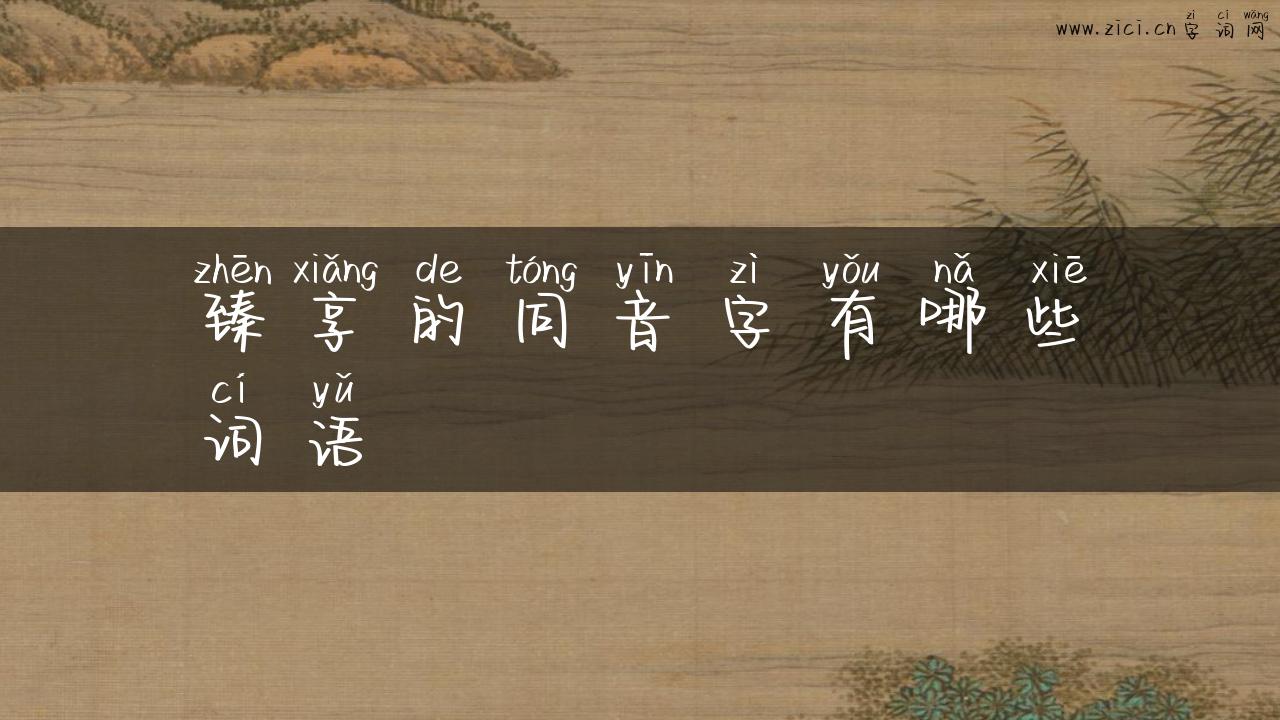 zì cí wǎng
www.zici.cn 字词网
zhēn xiǎng de tóng yīn zì yǒu nǎ xiē
臻享的同音字有哪些
cí yǔ
词语